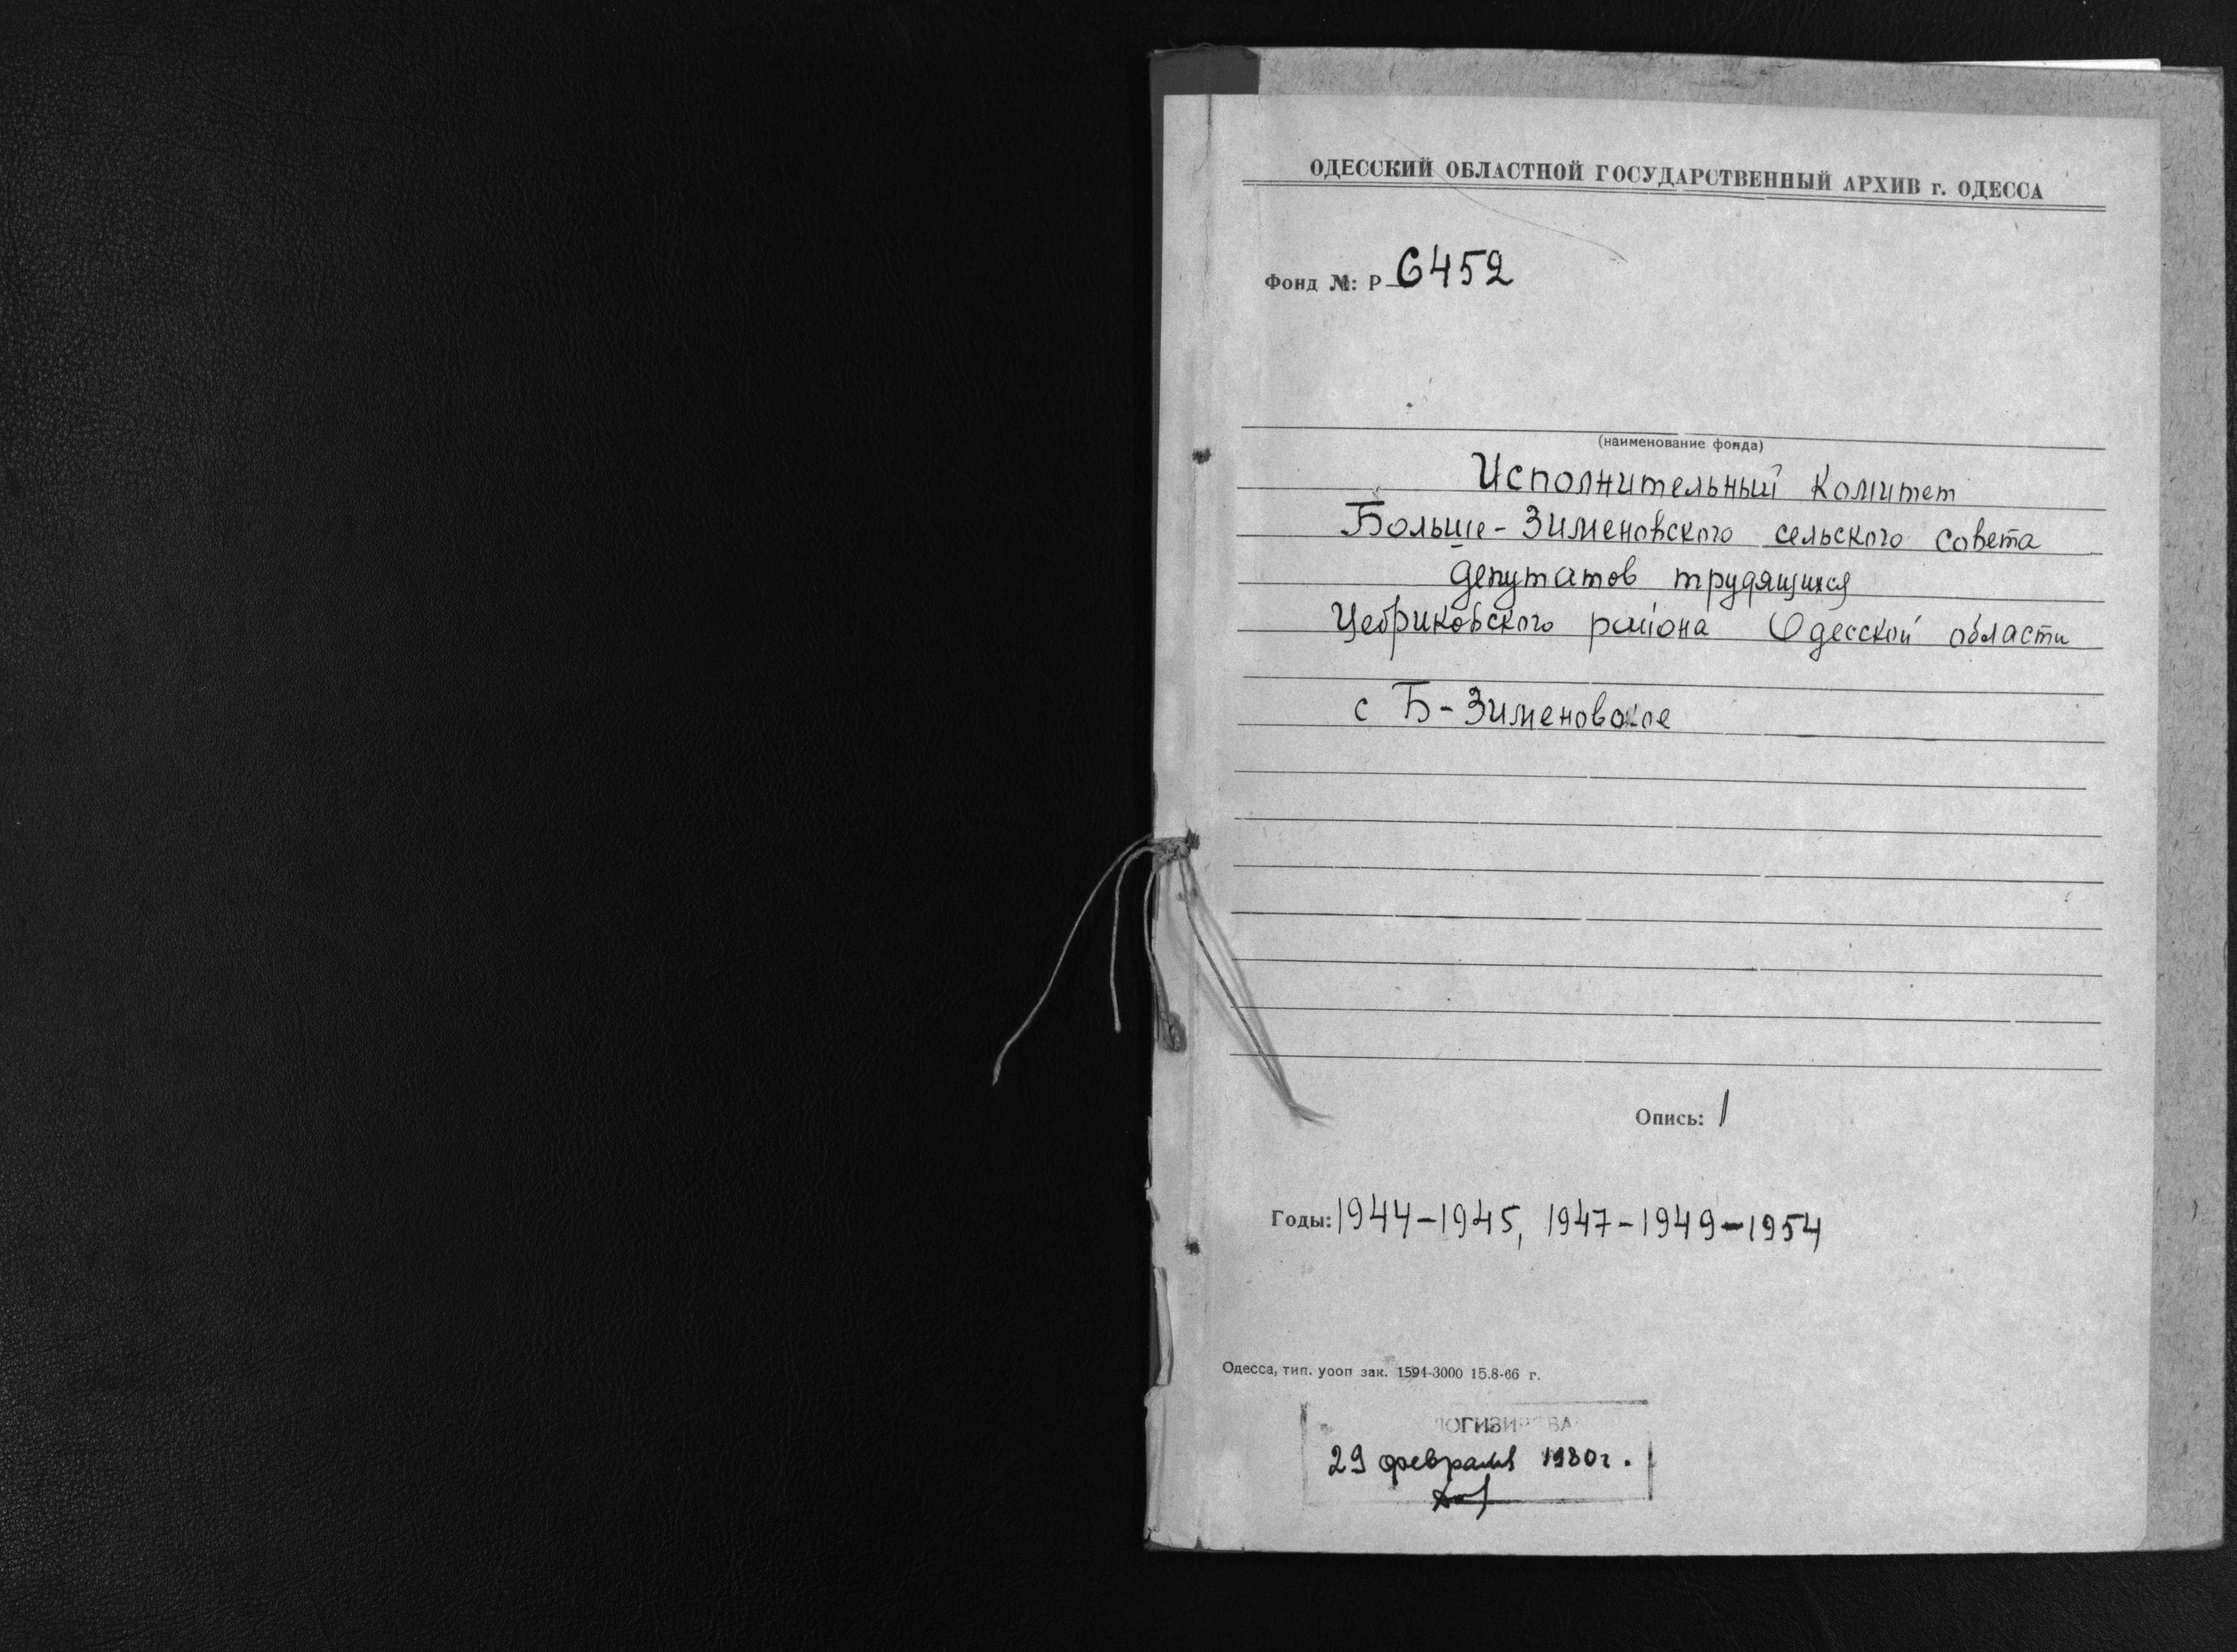 ОДЕССКИЙ ОБЛАСТНОЙ ГОСУДАРСТВЕННЫЙ АРХИВ г. ОДЕССА
Фонд №: Р-6452
(наименование фонда)
Исполнительный комитет
Больше-Зименовского сельского совета
депутатов трудящихся
Цебриковского района Одесской области
с Б-Зименовское
Опись: 1
Годы: 1944-1945, 1947-1949-1954
Одесса, тип. уооп зак. 1594-3000 15.8-66 г.
29 февраля 1980г.